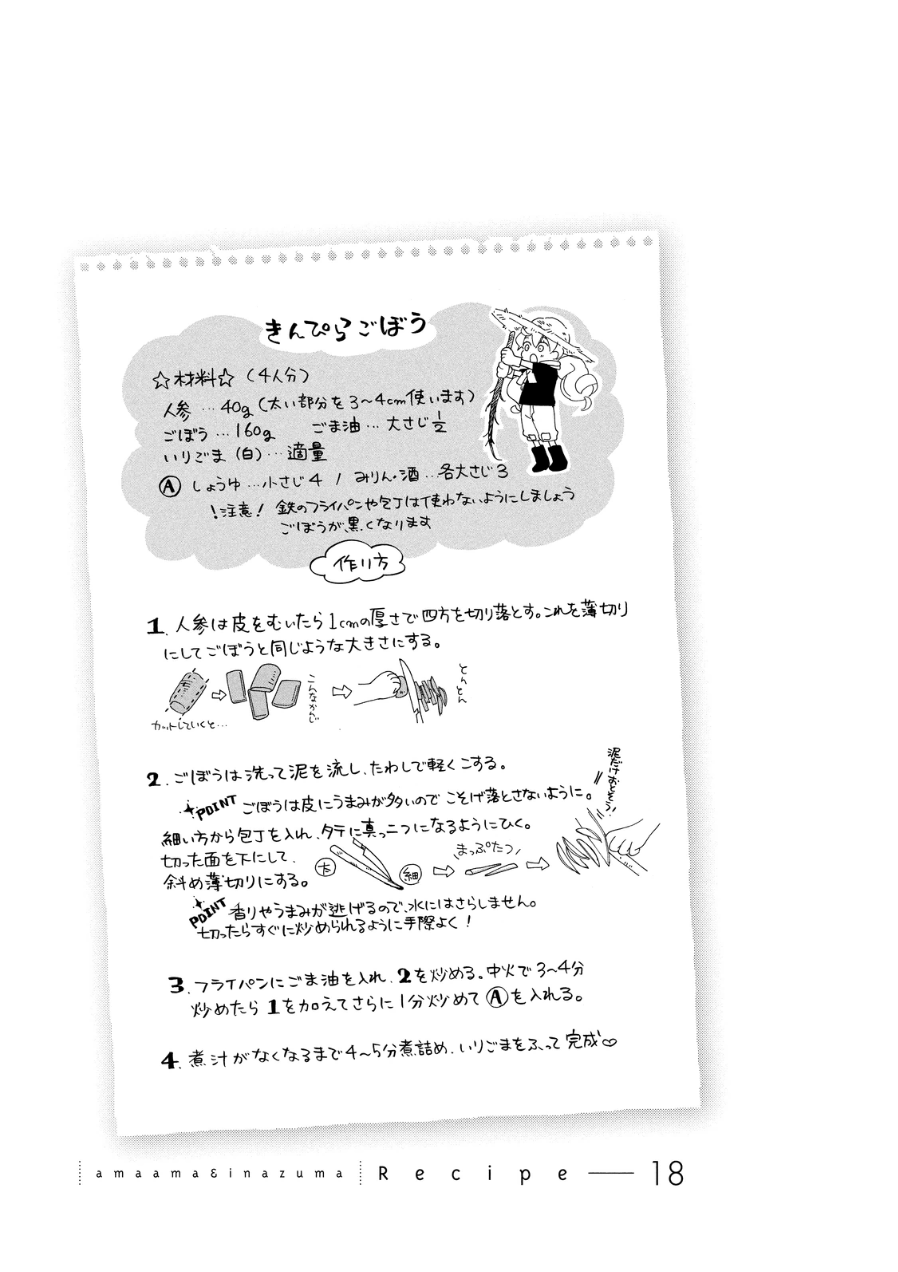 きんぴらごぼう
☆材料☆（4人分）
人参…40g（太い部分を3〜4cm使います）
ごぼう…160g　ごま油…大さじ1/2
いりごま（白）…適量
Ⓐ しょうゆ…小さじ4 / みりん・酒…各大さじ3
！注意！ 鉄のフライパンや包丁は使わないようにしましょう
ごぼうが黒くなります
作り方
1. 人参は皮をむいたら1cmの厚さで四方を切り落とす。これを薄切り
にしてごぼうと同じような大きさにする。
カットしていくと…
こんなかんじ
とんとん
2. ごぼうは洗って泥を流し、たわしで軽くこする。
POINT ごぼうは皮にうまみが多いので こそげ落とさないように。
泥だけおとそう！
細い方から包丁を入れ、タテに真っ二つになるようにひく。
切った面を下にして、
斜め薄切りにする。
太
細
まっぷたつ
POINT 香りやうまみが逃げるので、水にはさらしません。
切ったらすぐに炒められるように手際よく！
3. フライパンにごま油を入れ、2を炒める。中火で3〜4分
炒めたら1を加えてさらに1分炒めてⒶを入れる。
4. 煮汁がなくなるまで4〜5分煮詰め、いりごまをふって完成♡
amaama&inazuma Recipe — 18